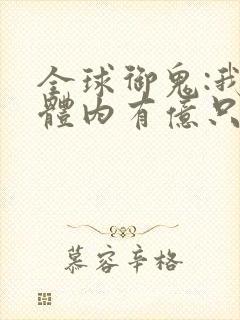 全球御鬼:我
體內有億只
慕容辛格